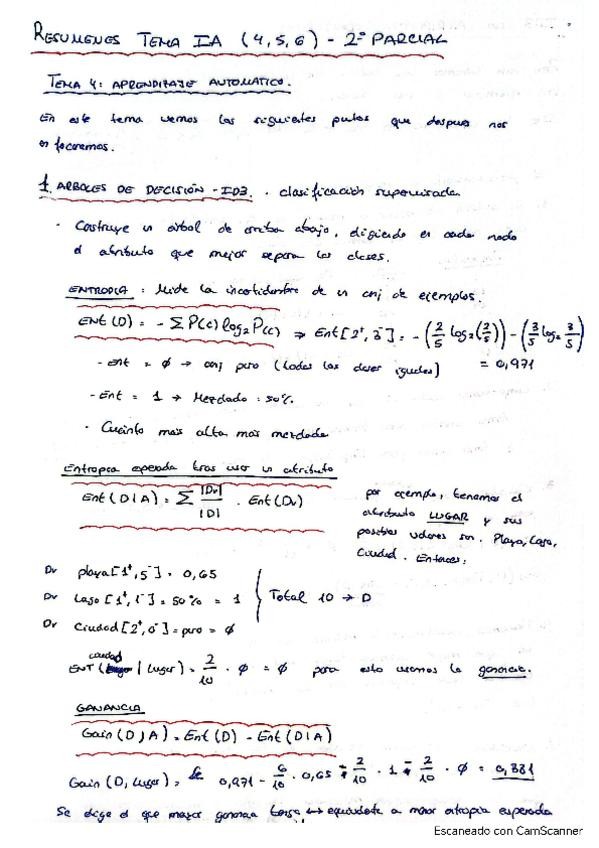 RESUMENES TEMA IA (4,5,6) - 2º PARCIAL
TEMA 4: APRENDIZAJE AUTOMATICO.
En este tema vemos los siguientes puntos que despues nos
enfocaremos.
1. ARBOLES DE DECISIÓN - ID3. · clasificación supervisada
· Construye un árbol de arriba abajo, eligiendo en cada nodo
el atributo que mejor separa las clases.
ENTROPIA: Mide la incertidumbre de un conj de ejemplos.
Ent(D) = - Σ P(c) log₂ P(c) ⇒ Ent[2⁺, 3⁻] = - (2/5 log₂(2/5)) - (3/5 log₂ 3/5)
= 0,971
- Ent = ϕ → conj puro (todas las clases iguales)
- Ent = 1 → Mezclado: 50%
· Cuanto más alta más mezclada
Entropia esperada tras usar un atributo
Ent(D|A) = Σ |Dv|/|D| · Ent(Dv)
por ejemplo, tenemos el
atributo LUGAR y sus
posibles valores son. Playa, Casa,
Ciudad. Entonces:
Dv playa[1⁺,5⁻] = 0,65
Dv Lago[1⁺,1⁻] = 50% = 1
Total 10 → D
Dv Ciudad[2⁺,0⁻] = puro = ϕ
ciudad
ENT( | Lugar) = 2/10 · ϕ = ϕ para esto usamos la ganancia.
GANANCIA
Gain(D,A) = Ent(D) - Ent(D|A)
Gain(D, Lugar) = 0,971 - 6/10 · 0,65 - 2/10 · 1 - 2/10 · ϕ = 0,381
Se elige el que mayor ganancia tenga ↔ equivalente a menor entropia esperada
Escaneado con CamScanner